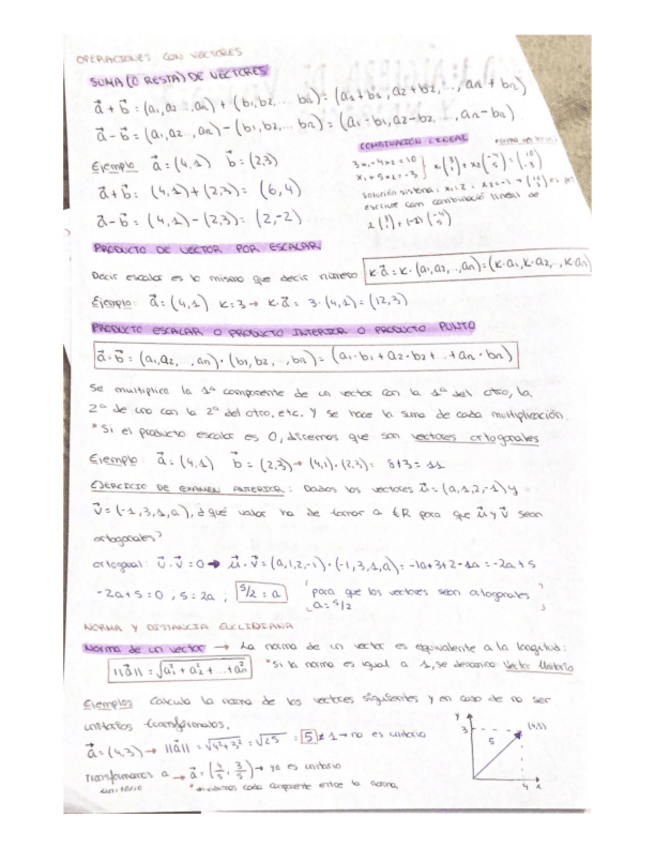 OPERACIONES CON VECTORES
SUMA (O RESTA) DE VECTORES
a⃗ + b⃗ = (a₁, a₂ ... aₙ) + (b₁, b₂, ... bₙ) = (a₁ + b₁, a₂ + b₂, ..., aₙ + bₙ)
a⃗ - b⃗ = (a₁, a₂ ..., aₙ) - (b₁, b₂, ... bₙ) = (a₁ - b₁, a₂ - b₂, ..., aₙ - bₙ)
Ejemplo a⃗ = (4,1) b⃗ = (2,3)
a⃗ + b⃗ = (4,1) + (2,3) = (6,4)
a⃗ - b⃗ = (4,1) - (2,3) = (2,-2)
COMBINACIÓN LINEAL
3x₁ - 4x₂ = 10
x₁ + 5x₂ = -3
solución sistema: x₁ = 2
escribe com combinació lineal de
PRODUCTO DE VECTOR POR ESCALAR
Decir escalar es lo mismo que decir número K·a⃗ = K·(a₁, a₂, .., aₙ) = (K·a₁, K·a₂, .., K·aₙ)
Ejemplo: a⃗ = (4,1) K = 3 → K·a⃗ = 3·(4,1) = (12,3)
PRODUCTO ESCALAR O PRODUCTO INTERIOR O PRODUCTO PUNTO
a⃗·b⃗ = (a₁, a₂, .., aₙ)·(b₁, b₂, .., bₙ) = (a₁·b₁ + a₂·b₂ + .. + aₙ·bₙ)
Se multiplica la 1ª componente de un vector con la 1ª del otro, la
2ª de uno con la 2ª del otro, etc. Y se hace la suma de cada multiplicación.
* Si el producto escalar es 0, dicemos que son vectores ortogonales
Ejemplo: a⃗ = (4,1) b⃗ = (2,3) → (4,1)·(2,3) = 8+3 = 11
EJERCICIO DE EXAMEN ANTERIOR: Dados los vectores u⃗ = (a,1,2,-1) y
v⃗ = (-1,3,1,a), ¿qué valor ha de tomar a ∈ R para que u⃗ y v⃗ sean
ortogonales?
ortogonal: u⃗·v⃗ = 0 → u⃗·v⃗ = (a,1,2,-1)·(-1,3,1,a) = -1a+3+2-1a = -2a+5
-2a+5 = 0 ; 5 = 2a ; 5/2 = a para que los vectores sean ortogonales
a = 5/2
NORMA Y DISTANCIA EUCLIDIANA
Norma de un vector → La norma de un vector es equivalente a la longitud:
||a⃗|| = √a₁² + a₂² + ... + aₙ² * Si la norma es igual a 1, se denomina Vector Unitario
Ejemplos Calcula la norma de los vectores siguientes y en caso de no ser
unitarios transfórmalos.
a⃗ = (4,3) → ||a⃗|| = √4²+3² = √25 = 5 ≠ 1 → no es unitario
Transformamos a → a⃗ = (4/5, 3/5) → ya es unitario
unitario * dividimos cada componente entre la norma
y
3
(4,3)
5
4 x